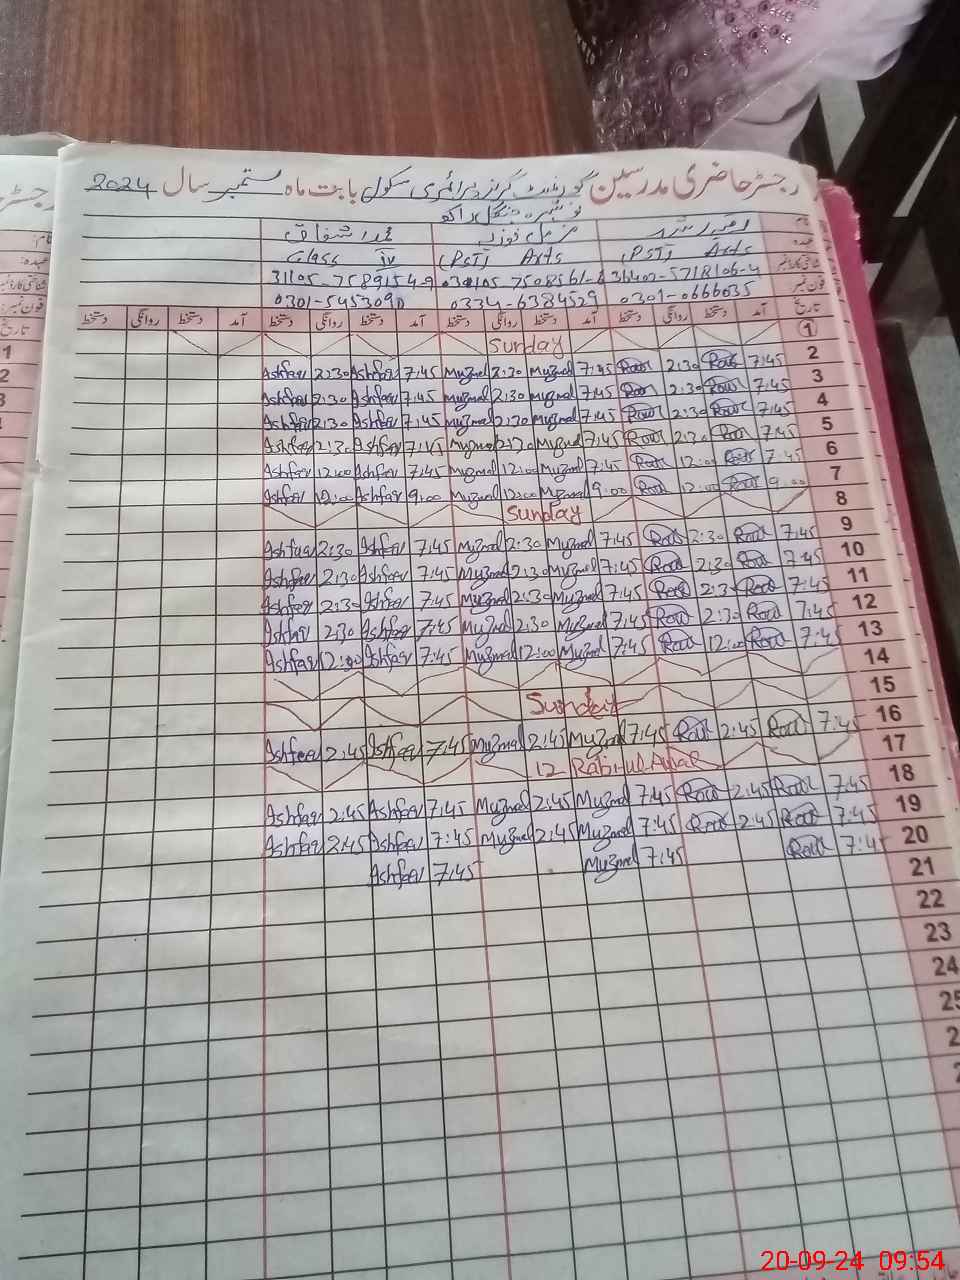 رجسٹر حاضری مدرسین گورنمنٹ گرلز پرائمری سکول بابت ماہ ستمبر سال 2024
نام
محمد اشفاق
عہدہ (PST) Arts (PST) Arts Class IV
شناختی کارڈ نمبر 31105-7589154-9
فون نمبر 0301-0666035 0334-6384529 0301-5453090
تاریخ آمد دستخط روانگی دستخط آمد دستخط روانگی دستخط آمد دستخط روانگی دستخط آمد دستخط روانگی دستخط
1 Sunday
2 7:45 2:30 7:45 Muzmal 2:30 Muzmal 7:45 Ashfaq 2:30 Ashfaq
3 7:45 2:30 7:45 Muzmal 2:30 Muzmal 7:45 Ashfaq 2:30 Ashfaq
4 7:45 2:30 7:45 Muzmal 2:30 Muzmal 7:45 Ashfaq 2:30 Ashfaq
5 7:45 2:30 7:45 Muzmal 2:30 Muzmal 7:45 Ashfaq 2:30 Ashfaq
6 7:45 12:00 7:45 Muzmal 12:00 Muzmal 7:45 Ashfaq 12:00 Ashfaq
7 9:00 12:00 9:00 Muzmal 12:00 Muzmal 9:00 Ashfaq 12:00 Ashfaq
8 Sunday
9 7:45 2:30 7:45 Muzmal 2:30 Muzmal 7:45 Ashfaq 2:30 Ashfaq
10 7:45 2:30 7:45 Muzmal 2:30 Muzmal 7:45 Ashfaq 2:30 Ashfaq
11 7:45 2:30 7:45 Muzmal 2:30 Muzmal 7:45 Ashfaq 2:30 Ashfaq
12 7:45 2:30 7:45 Muzmal 2:30 Muzmal 7:45 Ashfaq 2:30 Ashfaq
13 7:45 12:00 7:45 Muzmal 12:00 Muzmal 7:45 Ashfaq 12:00 Ashfaq
14
15 Sunday
16 7:45 2:45 7:45 Muzmal 2:45 Muzmal 7:45 Ashfaq 2:45 Ashfaq
17 12 Rabi-ul-Awal
18 7:45 2:45 7:45 Muzmal 2:45 Muzmal 7:45 Ashfaq 2:45 Ashfaq
19 7:45 2:45 7:45 Muzmal 2:45 Muzmal 7:45 Ashfaq 2:45 Ashfaq
20 7:45 7:45 Muzmal 7:45 Ashfaq
21
22
23
24
25
20-09-24 09:54